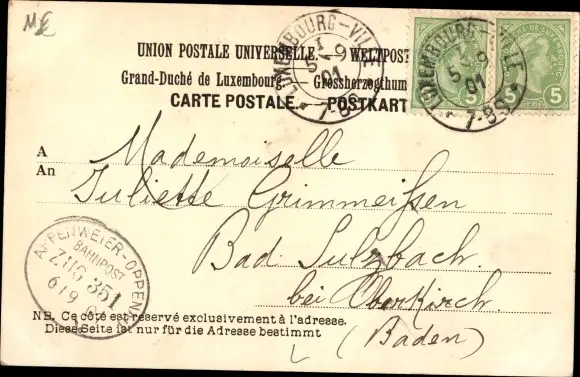 UNION POSTALE UNIVERSELLE. — WELTPOST
Grand-Duché de Luxembourg. — Grossherzogthum
CARTE POSTALE. — POSTKART
LUXEMBOURG-VILLE
5 9
01
7-8S
LUXEMBOURG-VILLE
5 9
01
7-8S
5
5
A
An
Mademoiselle
Juliette Grimmeißen
Bad Sulzbach
bei Oberkirch.
(Baden)
APPENWEIER-OPPENAU
BAHNPOST
ZUG 351
6/9
NB. Ce côté est réservé exclusivement à l'adresse.
Diese Seite ist nur für die Adresse bestimmt